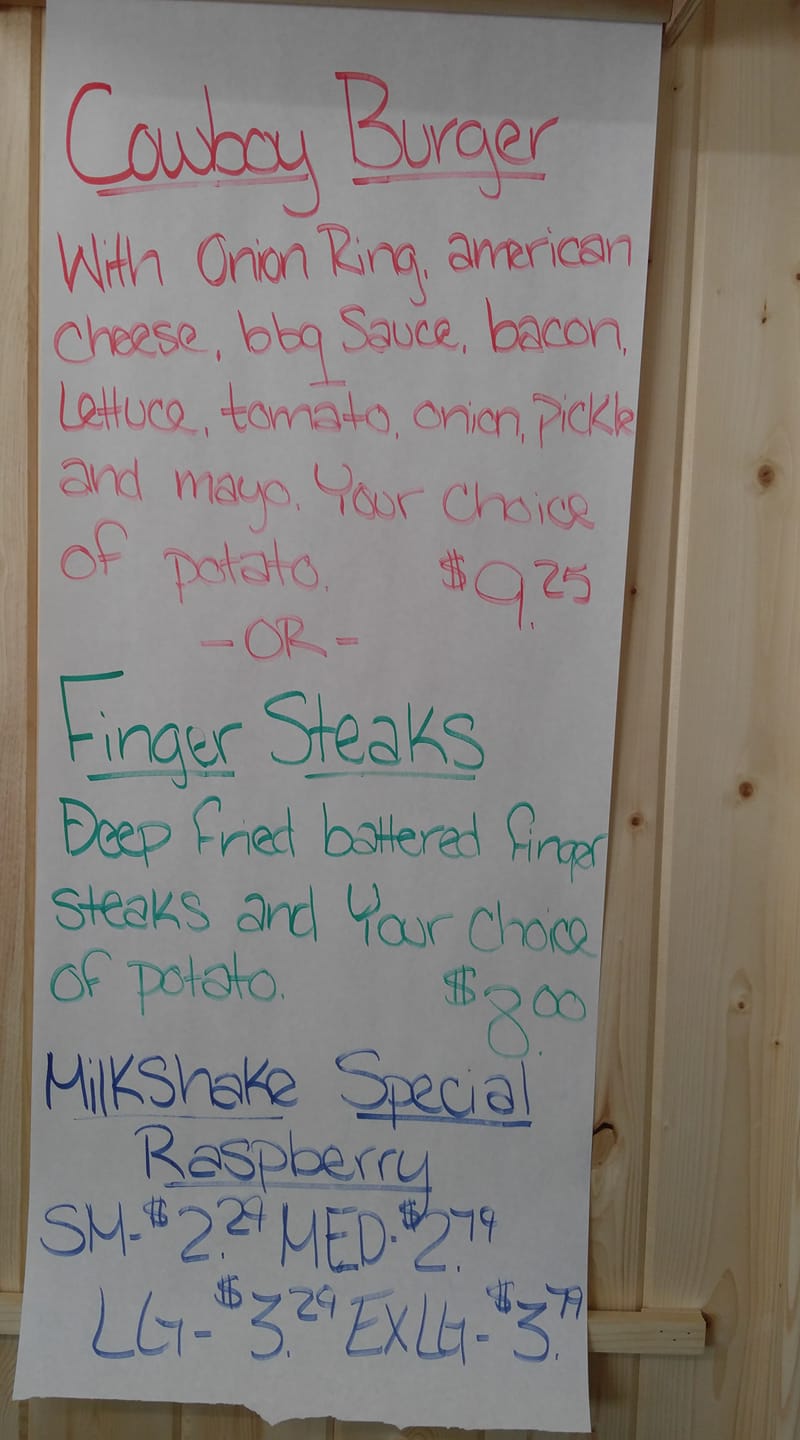 Cowboy Burger
With Onion Ring, american
cheese, bbq Sauce, bacon,
Lettuce, tomato, onion, pickle
and mayo. Your choice
of potato. $9.25
-OR-
Finger Steaks
Deep fried battered finger
steaks and Your choice
of potato. $8.00
Milkshake Special
Raspberry
SM-$2.29 MED-$2.79
LG-$3.29 EXLG-$3.79